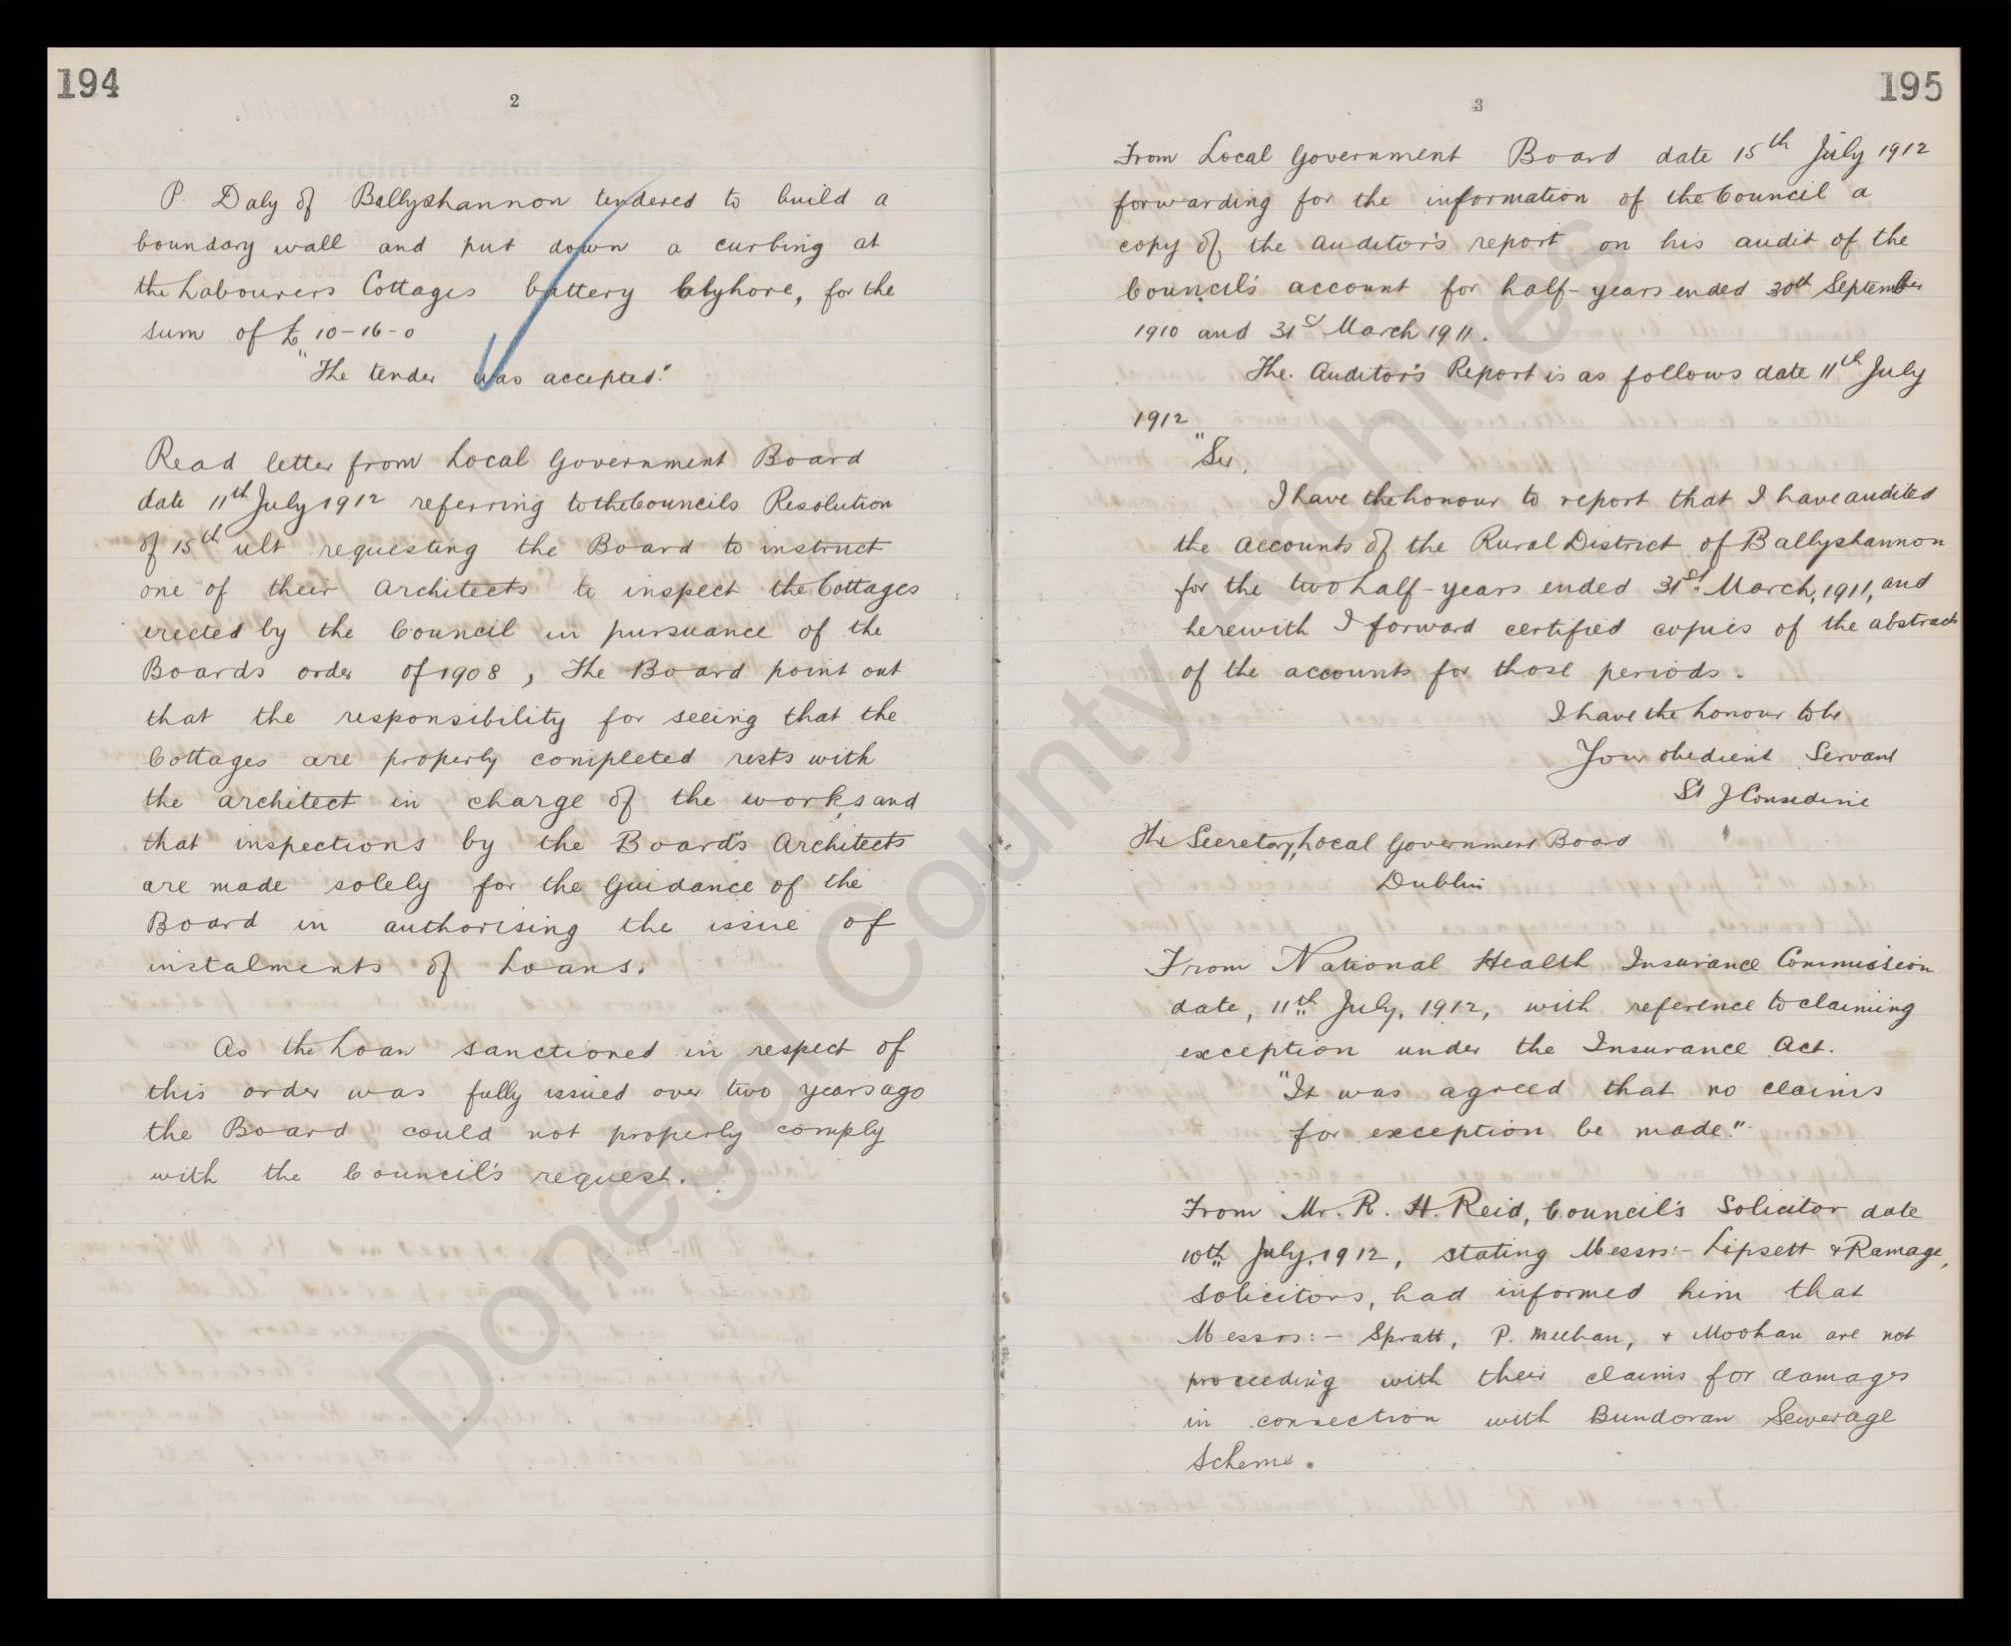 194
2
P. Daly of Ballyshannon tendered to build a
boundary wall and put down a curbing at
the Labourers Cottages battery Clyhore, for the
sum of £ 10-16-0
"The tender was accepted."
Read letter from Local Government Board
date 11th July 1912 referring to the Councils Resolution
of 15th ult requesting the Board to instruct
one of their Architects to inspect the Cottages
erected by the Council in pursuance of the
Boards order of 1908, The Board point out
that the responsibility for seeing that the
Cottages are properly completed rests with
the architect in charge of the works, and
that inspections by the Board's Architects
are made solely for the Guidance of the
Board in authorising the issue of
instalments of Loans.
As the Loan sanctioned in respect of
this order was fully issued over two years ago
the Board could not properly comply
with the Council's request.
195
3
From Local Government Board date 15th July 1912
forwarding for the information of the Council a
copy of the Auditor's report on his audit of the
Council's account for half-years ended 30th September
1910 and 31st March 1911.
The Auditor's Report is as follows date 11th July
1912
"Sir,
I have the honour to report that I have audited
the accounts of the Rural District of Ballyshannon
for the two half-years ended 31st March, 1911, and
herewith I forward certified copies of the abstract
of the accounts for those periods.
I have the honour to be
Your obedient Servant
St J Considine
The Secretary, Local Government Board
Dublin
From National Health Insurance Commission
date, 11th July, 1912, with reference to claiming
exception under the Insurance Act.
"It was agreed that no claims
for exception be made."
From Mr. R. H. Reid, Council's Solicitor date
10th July, 1912, stating Messrs:- Lipsett & Ramage,
Solicitors, had informed him that
Messrs:- Spratt, P. Meehan, & Moohan are not
proceeding with their claims for damages
in connection with Bundoran Sewerage
Scheme.
Donegal County Archives